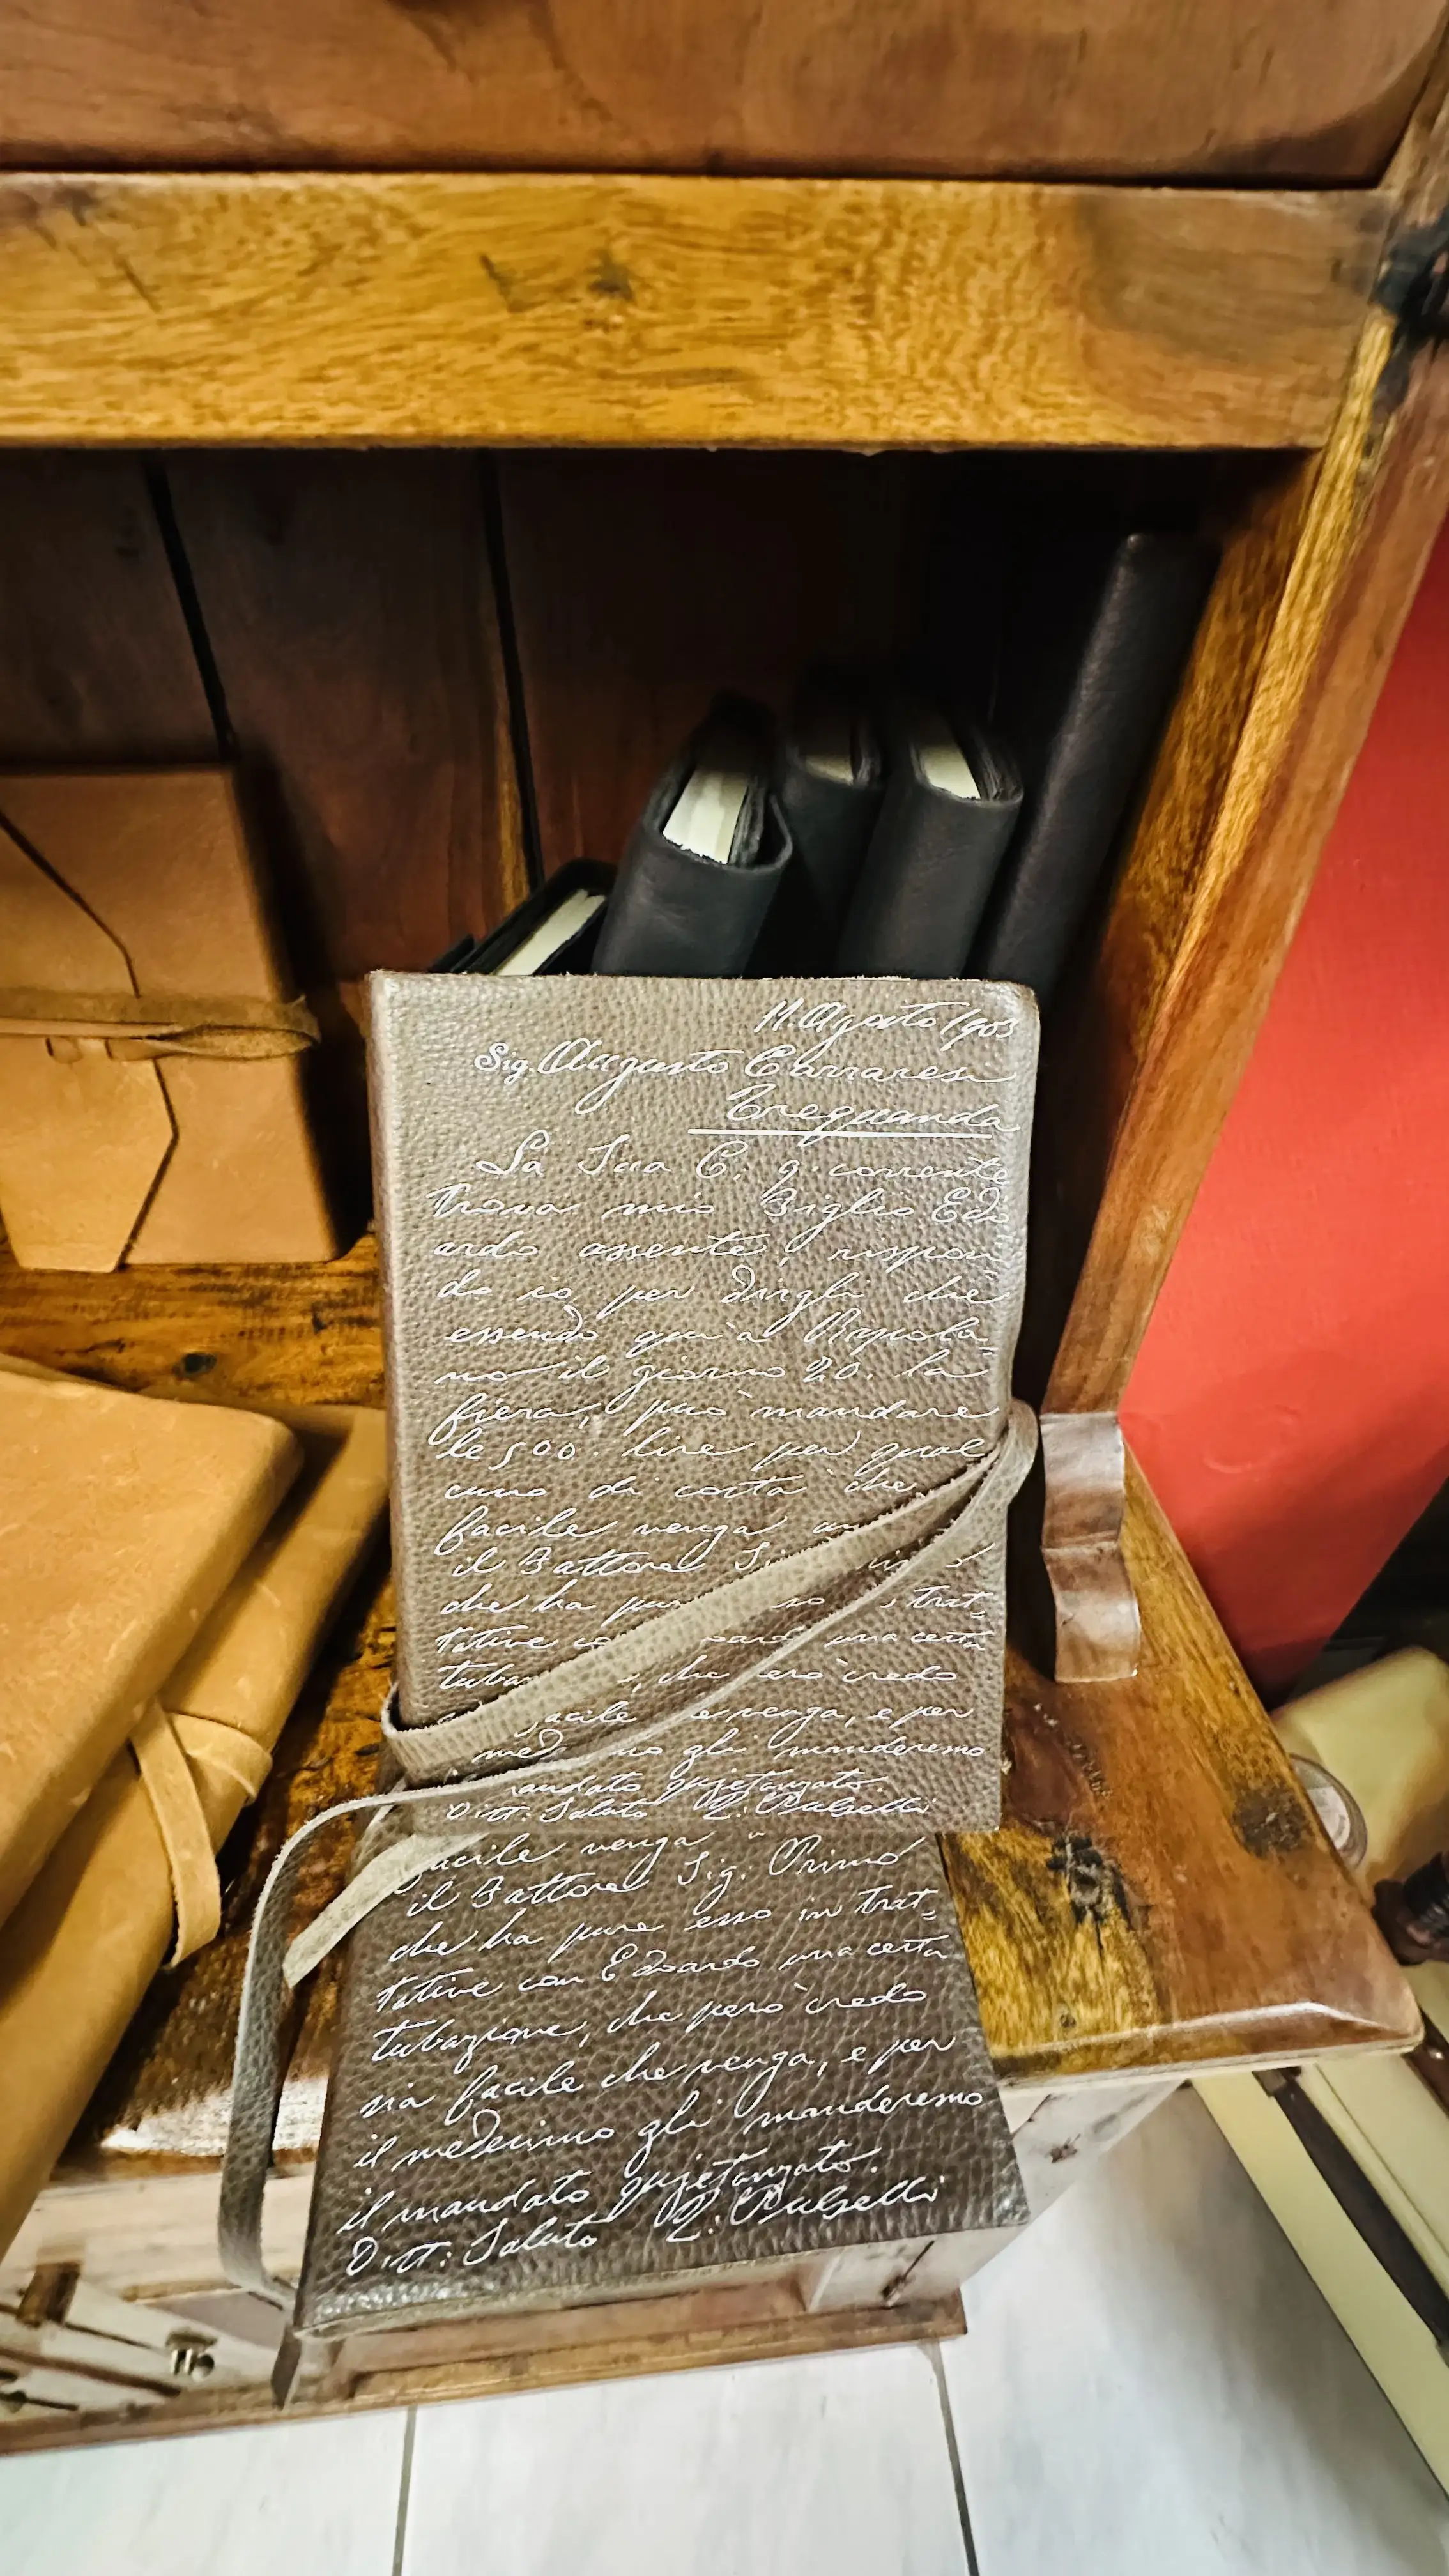 11. Agosto 1903
Sig. Augusto Carraresi
Trequanda
La Sua C. 9. corrente
trova mio Figlio Edo
ardo assente, rispon
do io per dirgli che
essendo qui a Rapola
no il giorno 20. la
fiera, può mandare
le 500. lire per qual
cuno di costà che
facile venga
il Fattore
che ha trat
tative una certa
che però credo
facile venga, e per
gli manderemo
mandato quietanzato.
Saluto
facile venga
il Fattore Sig. Primo
che ha pure esso in trat
tative con Edoardo una certa
tubazione, che però credo
sia facile che venga, e per
il medesimo gli manderemo
il mandato quietanzato.
Saluto